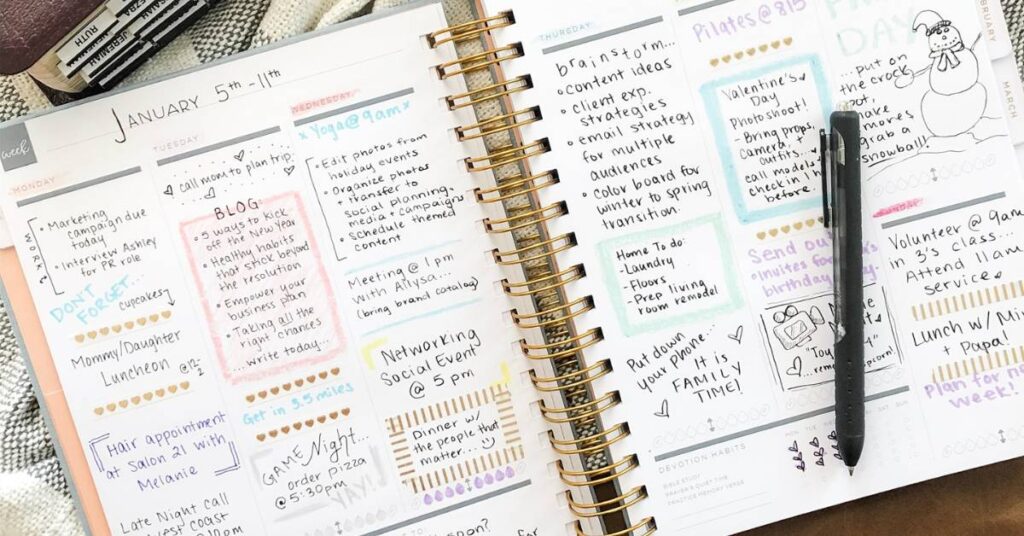 JEREMIAH
RUTH
JANUARY 5th-11th
week
MONDAY
WORK
• Marketing
campaign due
today
• Interview Ashley
for PR role
DON'T
FORGET...
cupcakes
Mommy/Daughter
Luncheon @12
Hair appointment
at Salon 21 with
Melanie
Late Night call
West Coast
TUESDAY
call mom to plan trip
BLOG:
• 5 ways to kick
off the New Year
• Healthy habits
that stick beyond
the resolution
• Empower your
business plan
• Taking all the
right chances
... write today...
Get in 3.5 miles
GAME Night...
order pizza
@ 5:30pm
YAY!
WEDNESDAY
x Yoga @ 9am x
• Edit photos from
holiday events
• Organize photos
+ transfer to
social planning
media + campaigns
• Schedule themed
content
Meeting @ 1pm
with Allysa...
(bring brand catalog)
Networking
Social Event
@ 5 pm
Dinner w/
the people that
matter...
THURSDAY
brainstorm...
• content ideas
• client exp.
strategies
• email strategy
for multiple
audiences
• color board for
winter to spring
transition.
Home To do:
- Laundry
- Floors
- Prep living
room remodel
Put down
your phone.
It is
FAMILY
TIME!
DEVOTION HABITS
BIBLE STUDY
PRAYER & QUIET TIME
PRACTICE MEMORY VERSE
Pilates @ 815
Valentine's
Day
Photoshoot!
- Bring props,
camera +
outfits.
call model
check in 1h
before.
Send out
• Invites for
birthday
MON TUE
SAT SUN
DAY
...put on
the crock
pot,
make
s'mores
grab a
snowball!
SUNDAY
Volunteer @ 9am
in 3's class...
Attend 11am
service.
Lunch w/
+ Papa!
Plan for
week!
FEBRUARY
MARCH